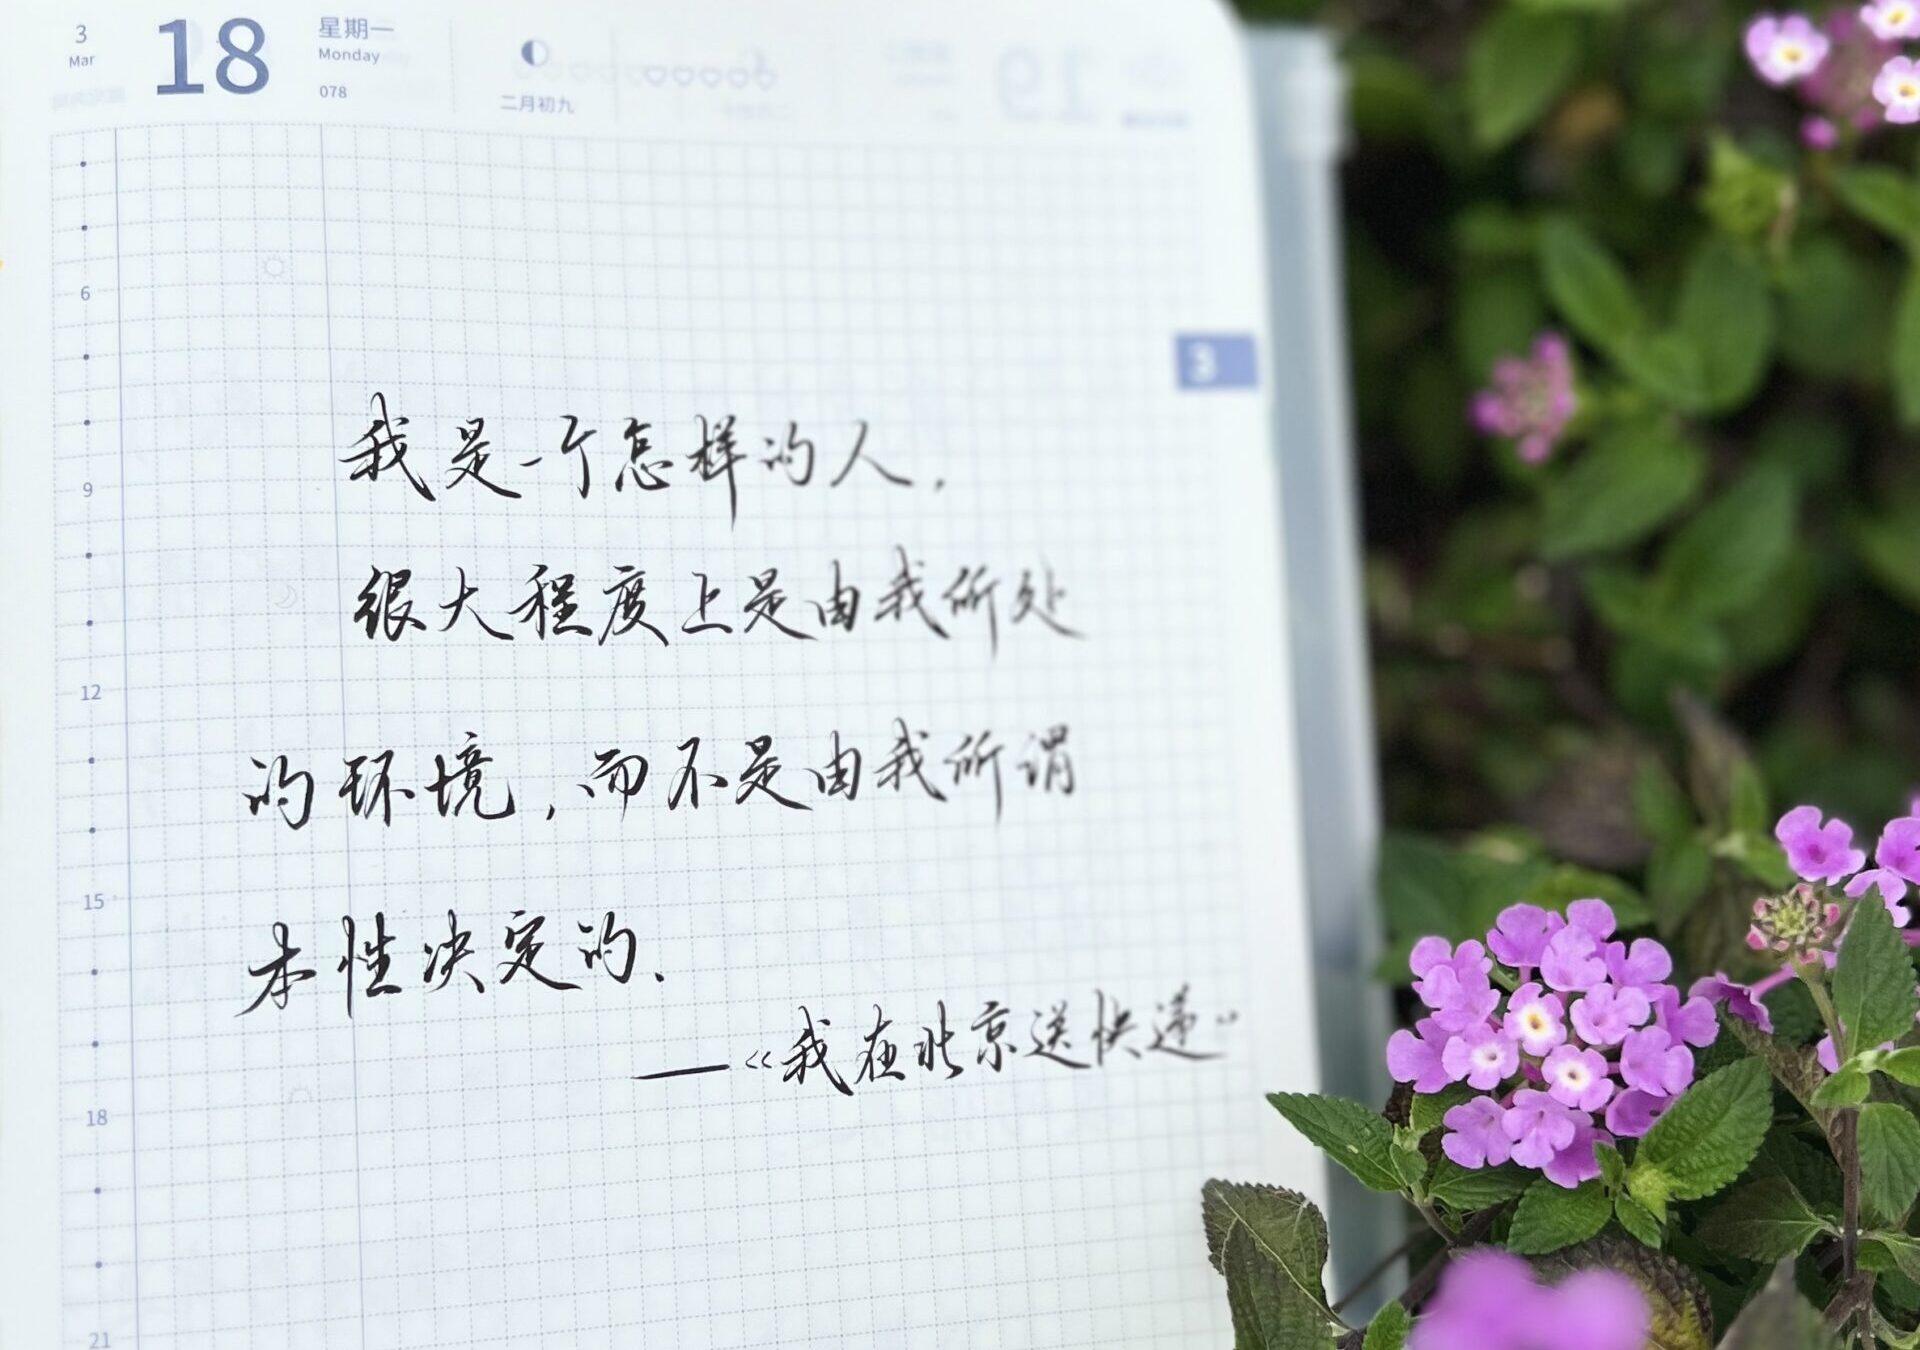 3
Mar
18
星期一
Monday
078
二月初九
3
6
9
12
15
18
21
我是一个怎样的人，
很大程度上是由我所处
的环境，而不是由我所谓
本性决定的.
——《我在北京送快递》